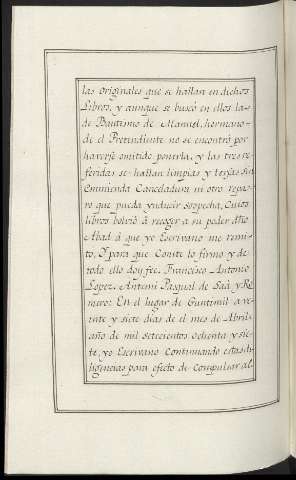 las Originales que se hallan en dichos
Libros, y aunque se buscó en ellos la-
de Bautismo de Manuel, hermano-
de el Pretendiente no se encontró por
haverse omitido ponerla, y las tres re-
feridas se hallan limpias y tersas sin
enmienda Canceladura ni otro repa-
ro que pueda ynducir Sospecha, Cuios
libros bolvió á recoger a su poder dho
Abad á que yo Escrivano me remi-
to, Y para que Conste lo firmo y de
todo ello doy fee. Francisco Antonio
Lopez. Antemi Pasqual de Saá y Ro
mero: En el lugar de Guntimil a ve-
inte y siete dias de el mes de Abril
año de mil setecientos ochenta y sie-
te yo Escrivano Continuando estas di-
ligencias para efecto de Compulsar al